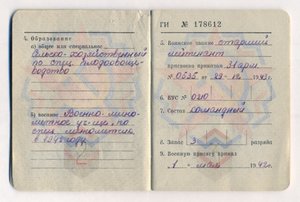 4. Образование
а) общее или специальное
Сельско-хозяйственный
по спец. плодоовоще-
водство
б) военное Военно-мино-
метное уч-ще, по
в 1942 году.
ГИ № 178612
5. Воинское звание старший
лейтенант
присвоено приказом 31 арм
№ 0535 от 22-12 1942 г.
6. ВУС № 0210
7. Состав командный
8. Запас 3 разряда
9. Военную присягу принял
1 мая 1942 г.